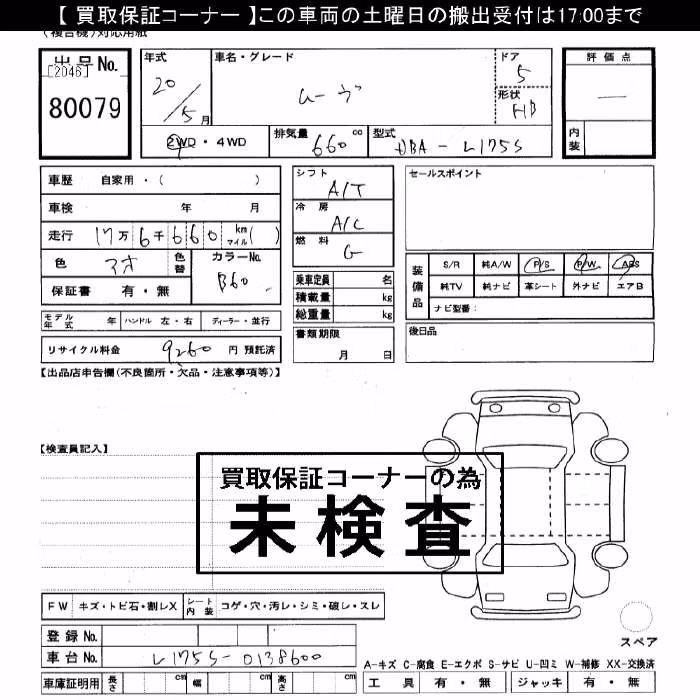 【 買取保証コーナー 】この車両の土曜日の搬出受付は17:00まで
(複合機)対応用紙
出品No.
[2046]
80079
年式
20/5月
車名・グレード
ムーヴ
ドア
5
形状
HB
評価点
—
内装
2WD・4WD
排気量 660 cc
型式 DBA-L175S
車歴 自家用・( )
車検 年 月
走行 17万6千660 km マイル( )
色 アオ 色替
カラーNo. B60
保証書 有・無
モデル年式 年 ハンドル 左・右 ディーラー・並行
リサイクル料金 9260 円 預託済
シフト A/T
冷房 A/C
燃料 G
乗車定員 名
積載量 kg
総重量 kg
書類期限
月 日
セールスポイント
装備品
S/R 純A/W P/S P/W ABS
純TV 純ナビ 革シート 外ナビ エアB
ナビ型番:
後日品
【出品店申告欄(不良箇所・欠品・注意事項等)】
【検査員記入】
買取保証コーナーの為
未検査
FW キズ・トビ石・割レX シート内装 コゲ・穴・汚レ・シミ・破レ・スレ
登録No.
車台No. L175S-0138600
車庫証明用 長さ cm 幅 cm 高さ cm
スペア
A-キズ C-腐食 E-エクボ S-サビ U-凹ミ W-補修 XX-交換済
工具 有・無 ジャッキ 有・無